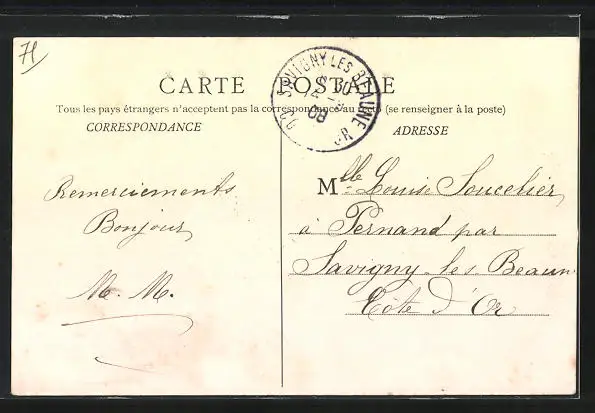 71
CARTE POSTALE
Tous les pays étrangers n'acceptent pas la correspondance au recto (se renseigner à la poste)
CORRESPONDANCE
ADRESSE
SAVIGNY LES BEAUNE
08
Remerciements
Bonjour
M. M.
Mlle Louise Soucelier
à Pernand par
Savigny-les-Beaun
Côte d'Or